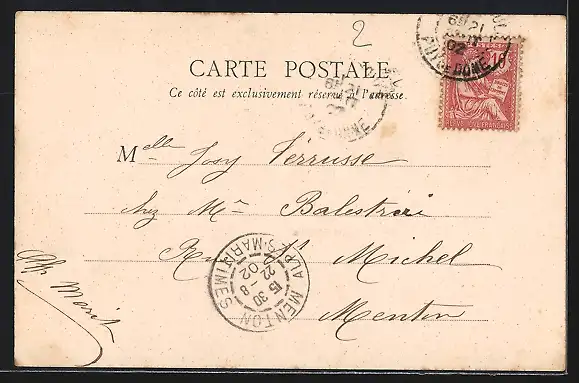 2
CARTE POSTALE
Ce côté est exclusivement réservé à l'adresse.
Melle Josy Verrusse
chez Mr Balestréri
Rue St Michel
Menton
MENTON
ALPES-MARITIMES
15-30
22-8
02
PUY DE DOME
02
10